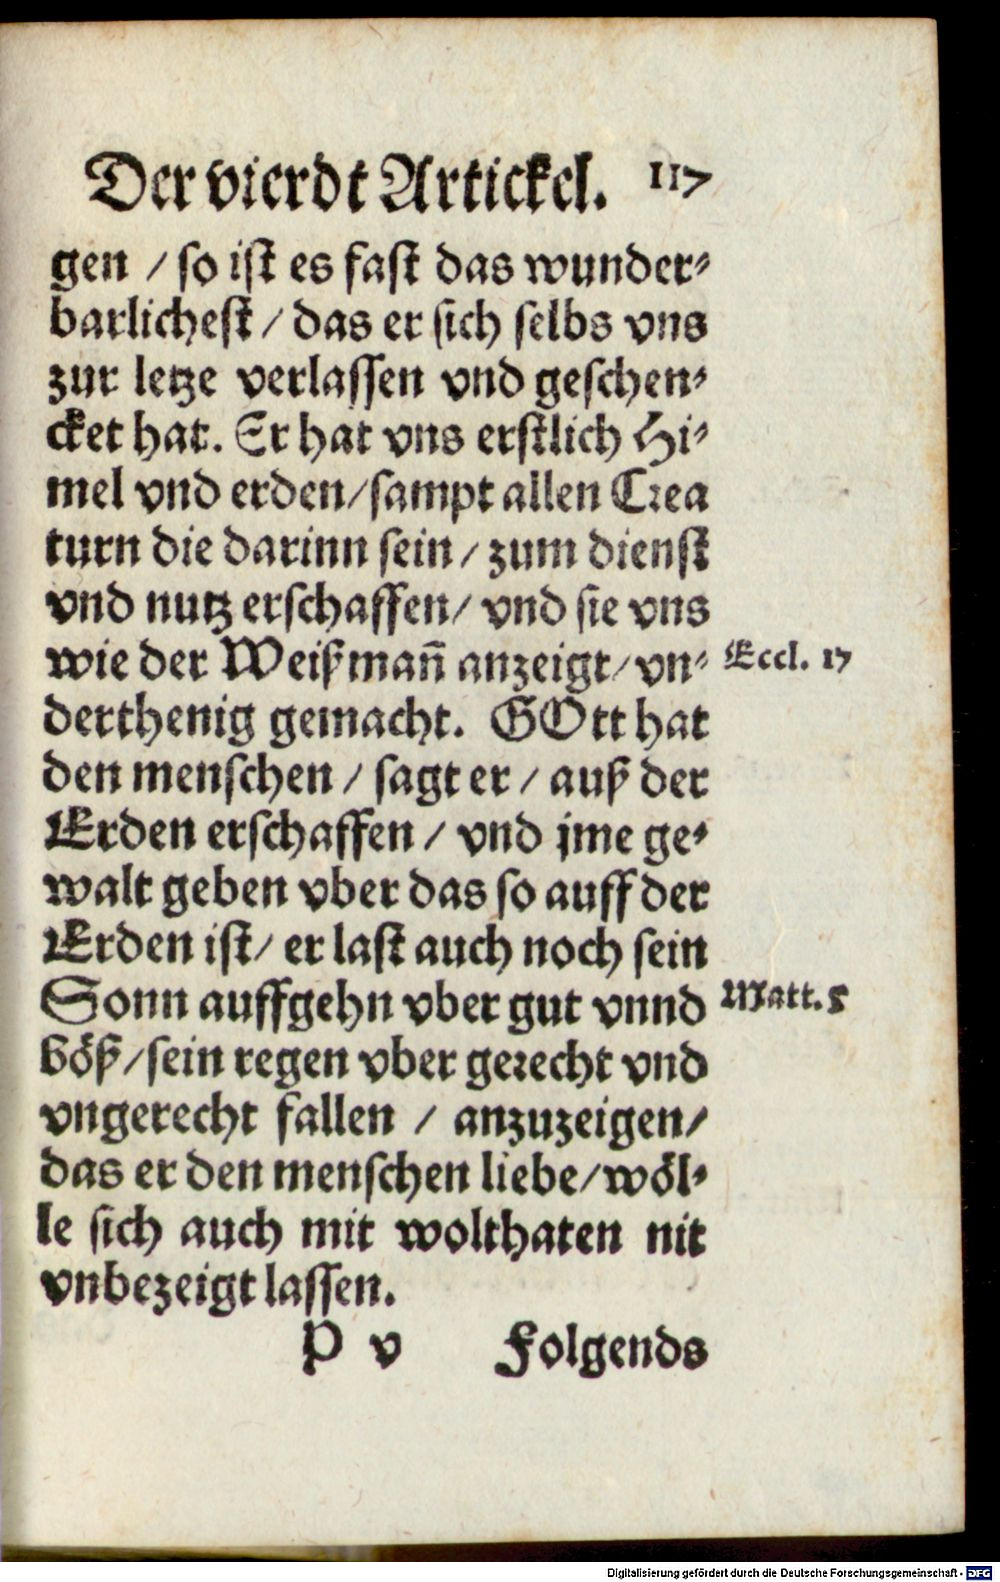 Der vierdt Artickel. 117
gen / so ist es fast das wunder-
barlichest / das er sich selbs vns
zur letze verlassen vnd geschen-
cket hat. Er hat vns erstlich Hi-
mel vnd erden/sampt allen Crea
turn die darinn sein / zum dienst
vnd nutz erschaffen/ vnd sie vns
wie der Weißmañ anzeigt/ vn- Eccl. 17
derthenig gemacht. GOtt hat
den menschen / sagt er / auß der
Erden erschaffen / vnd jme ge-
walt geben vber das so auff der
Erden ist/ er last auch noch sein
Sonn auffgehn vber gut vnnd Matt. 5
böß/sein regen vber gerecht vnd
vngerecht fallen / anzuzeigen/
das er den menschen liebe/wöl-
le sich auch mit wolthaten nit
vnbezeigt lassen.
P v Folgends
Digitalisierung gefördert durch die Deutsche Forschungsgemeinschaft - DFG